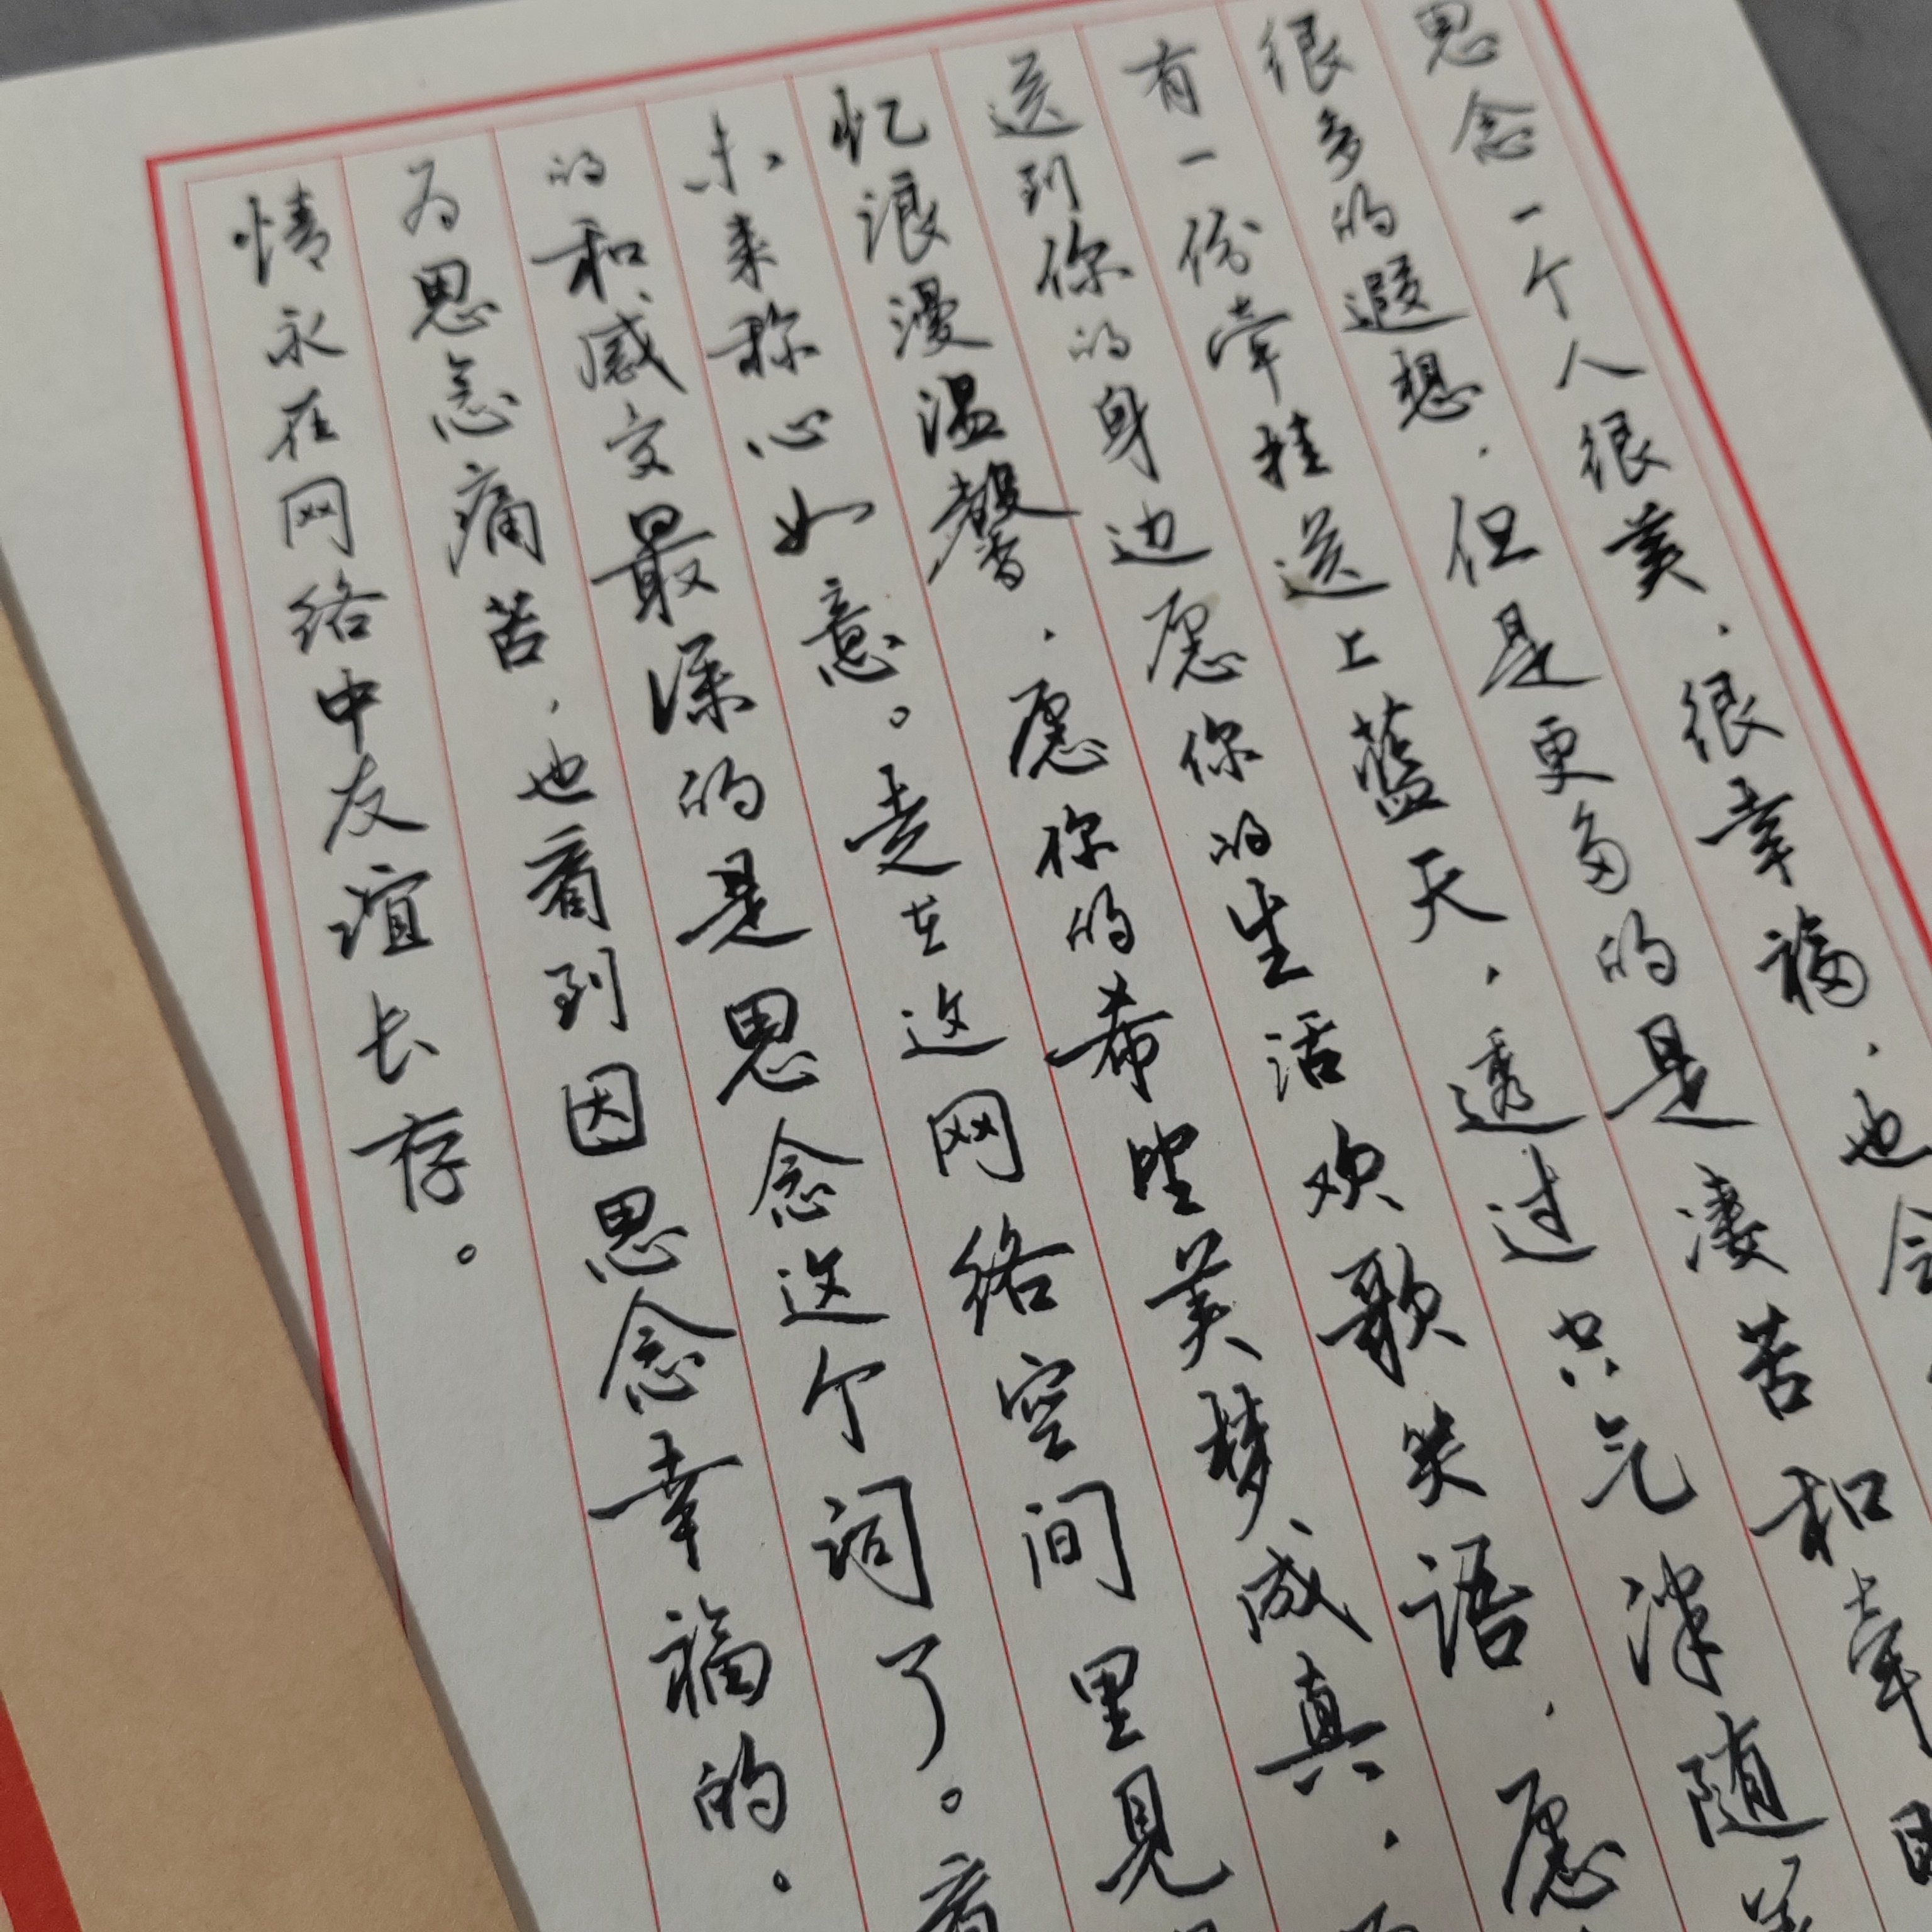 思念一个人很美，很幸福，也会
很多的遐想，但是更多的是凄苦和牵
有一份牵挂送上蓝天，透过空气
送到你的身边愿你的生活欢歌笑语，愿
忆浪漫温馨，愿你的希望美梦成真，
未来称心如意。走在这网络空间里见
的和感交最深的是思念这个词了。看
为思念痛苦，也看到因思念幸福的。
情永在网络中友谊长存。